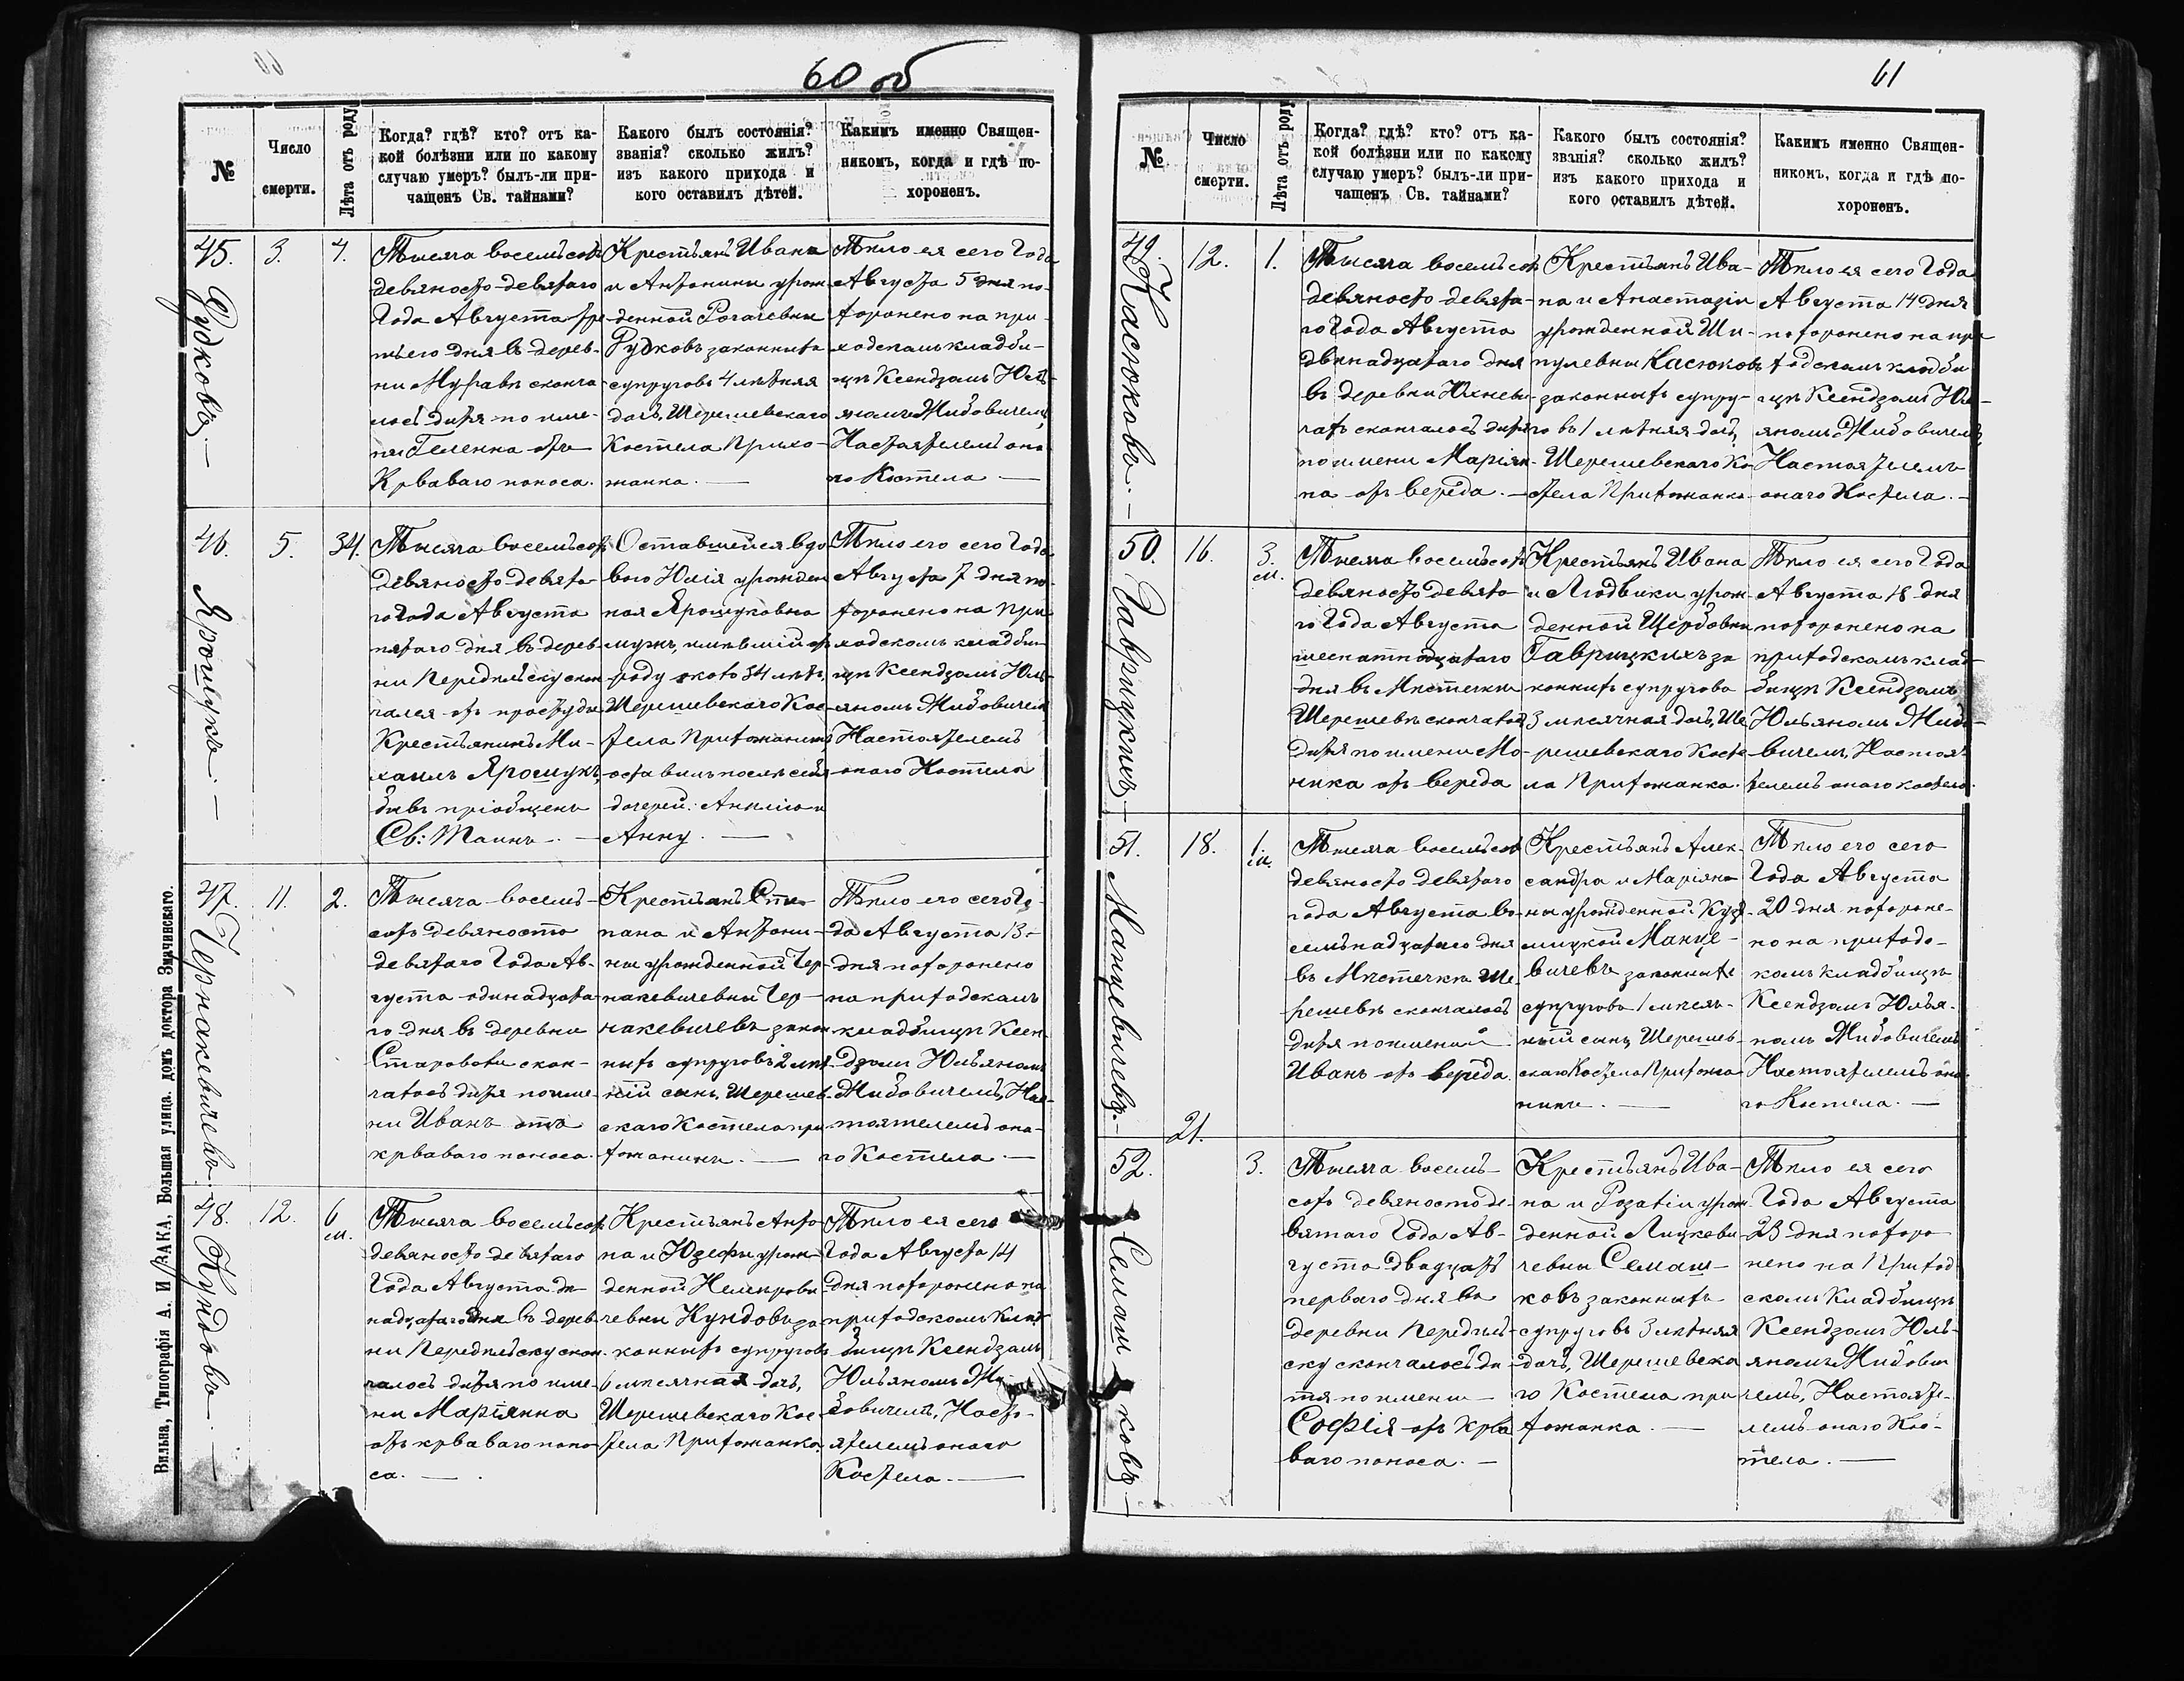 60 об
№
Число
смерти.
Лѣта отъ роду
Когда? гдѣ? кто? отъ ка-
кой болѣзни или по какому
случаю умеръ? былъ-ли при-
чащенъ Св. тайнами?
Какого былъ состоянія?
званія? сколько жилъ?
изъ какого прихода и
кого оставилъ дѣтей.
Какимъ именно Священ-
никомъ, когда и гдѣ по-
хороненъ.
45.
Рудковъ.—
3.
4.
Тысяча восемьсотъ
девяносто девятаго
Года Августа тре
тьего дня въ дерев-
ни Муравѣ сконча
лось дитя по име-
ни Геленна отъ
Крваваго поноса.
Крестьянъ Ивана
и Антонины урож
денной Рогачевны
Рудковъ законныхъ
супруговъ 4 лѣтняя
дочь, Шерешевскаго
Костела Прихо-
жанка.—
Тѣло ея сего Года
Августа 5 дня по-
хоронено на при-
ходскомъ кладби-
щѣ Ксендзомъ Юль-
яномъ Жибовичемъ,
Настоятелемъ она
го Костела —
46.
Ярошукъ.—
5.
34.
Тысяча восемьсотъ
девяносто девята-
го Года Августа
пятаго дня въ дерев
ни Передѣльску скон
чался отъ простуды
Крестьянинъ Ми-
хаилъ Ярошукъ,
бывъ пріобщенъ
Св: Таинъ.—
Оставшейся вдо
вого Юлія урожден
ная Ярошуковна
мужъ, имѣвшій отъ
роду около 34 лѣтъ,
Шерешевскаго Кос-
тела Прихожанинъ
оставилъ послѣ себя
дочерей: Анелію и
Анну.—
Тѣло его сего Года
Августа 7 дня по-
хоронено на При
ходскомъ кладби-
щѣ Ксендзомъ Юль-
яномъ Жибовичемъ
Настоятелемъ
онаго Костела
47.
Чернакевичевъ
11.
2.
Тысяча восемь-
сотъ девяносто
девятаго Года Ав-
густа одинадцата-
го дня въ деревни
Староволи скон-
чалось дитя по име-
ни Иванъ отъ
крваваго поноса.
Крестьянъ Сте-
пана и Антони-
ны урожденной Чер-
накевичевны Чер-
накевичевъ закон
ныхъ супруговъ 2 лѣт
ній сынъ, Шерешев
скаго Костела при
хожанинъ.—
Тѣло его сего Го-
да Августа 13-
дня похоронено
на приходскомъ
кладбищѣ Ксен-
дзомъ Юльяномъ
Жибовичемъ, Нас-
тоятелемъ она-
го Костела.—
48.
Кундовъ.—
12.
6
м.
Тысяча восемьсотъ
девяносто девятаго
Года Августа дв-
надцатаго дня въ дерев
ни Передѣльску скон-
чалось дитя по име-
ни Маріянна
отъ крваваго поно
са.—
Крестьянъ Анто
на и Юзефы урож-
денной Немирови-
чевны Кундовъ за
конныхъ супруговъ
6 мѣсячная дочь,
Шерешевскаго Кос
тела Прихожанка.
Тѣло ея сего
Года Августа 14
дня похоронено на
приходскомъ клад-
бищѣ Ксендзомъ
Юльяномъ Жи
бовичемъ, Насто-
ятелемъ онаго
Костела.—
Вильна, Типографія А. И ЗАКА, Большая улица. домъ доктора Змачинскаго.
61
№
Число
смерти.
Лѣта отъ роду
Когда? гдѣ? кто? отъ ка-
кой болѣзни или по какому
случаю умеръ? былъ-ли при-
чащенъ Св. тайнами?
Какого былъ состоянія?
званія? сколько жилъ?
изъ какого прихода и
кого оставилъ дѣтей.
Какимъ именно Священ-
никомъ, когда и гдѣ по-
хороненъ.
49.
Касюковъ.—
12.
1.
Тысяча восемьсотъ
девяносто девята-
го Года Августа
двѣнадцатаго дня
въ деревни
скончалось дитя
по имени Маріян-
на отъ вереда.—
Крестьянъ Ива-
на и Анастазіи
урожденной Ши-
пулевны Касюковъ
законныхъ супру-
говъ 1 лѣтняя дочь,
Шерешевскаго Ко
стела Прихожанка
Тѣло ея сего Года
Августа 14 дня
похоронено на при
ходскомъ кладби
щѣ Ксендзомъ Юль-
яномъ Жибовичемъ,
Настоятелемъ
онаго Костела.—
50.
Гаврицкихъ—
16.
3.
м.
Тысяча восемьсотъ
девяносто девято
го Года Августа
шеснатнадцатаго
дня въ Мѣстечки
Шерешевѣ скончалось
дитя по имени Мо-
ника отъ вереда
Крестьянъ Ивана
и Людвики урож-
денной Щербовны
Гаврицкихъ за
конныхъ супруговъ
3 мѣсячная дочь, Ше
решевскаго Косте
ла Прихожанка.
Тѣло ея сего Года
Августа 18 дня
похоронено на
приходскомъ клад-
бищѣ Ксендзомъ
Юльяномъ Жибо-
вичемъ, Настоя-
телемъ онаго костела.
51.
Манцевичевъ.—
18.
1.
м.
Тысяча восемьсотъ
девяносто девятаго
года Августа во-
семьнадцатаго дня
въ Мѣстечкѣ Ше-
решевѣ скончалось
дитя по имени
Иванъ отъ вереда.
Крестьянъ Алек-
сандра и Маріян-
ны урожденной
Манце-
вичевъ законныхъ
супруговъ 1 мѣсяч-
ный сынъ, Шерешев-
скаго Костела Прихожа
нинъ.—
Тѣло его сего
Года Августа
20 дня похороне-
но на приходс-
комъ кладбищѣ
Ксендзомъ Юлья-
номъ Жибовичемъ
Настоятелемъ она-
го Костела.—
52.
Семашковъ—
21.
3.
Тысяча восемь-
сотъ девяносто де-
вятаго Года Ав-
густа двадцать
перваго дня въ
деревни Передѣль-
ску скончалось ди-
тя по имени —
Софія отъ Крва
ваго поноса.—
Крестьянъ Ива-
на и Розаліи урож-
денной Лицкеви-
чевны Семаш-
ковъ законныхъ
супруговъ 3 лѣтняя
дочь, Шерешевска
го Костела при
хожанка.—
Тѣло ея сего
Года Августа
23 дня похоро
нено на Приход
скомъ Кладбищѣ
Ксендзомъ Юль-
яномъ Жибови
чемъ, Настояте-
лемъ онаго Кос-
тела.—